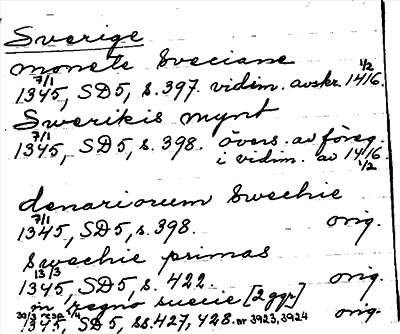 Sverige
monete Sveciane
7/1 1345, SD5, s. 397. vidim. avskr. 1/2 1416.
Swerikis mynt
7/1 1345, SD5, s. 398. övers. av föreg.
i vidim. av 1416 1/2
denariorum Swechie
7/1 1345, SD5, s. 398. orig.
Swechie primas
13/3 1345, SD5, s. 422. orig.
in regno suecie [2 ggr]
30/3 resp. 1/4 1345, SD5, ss. 427, 428. nr 3923, 3924 orig.